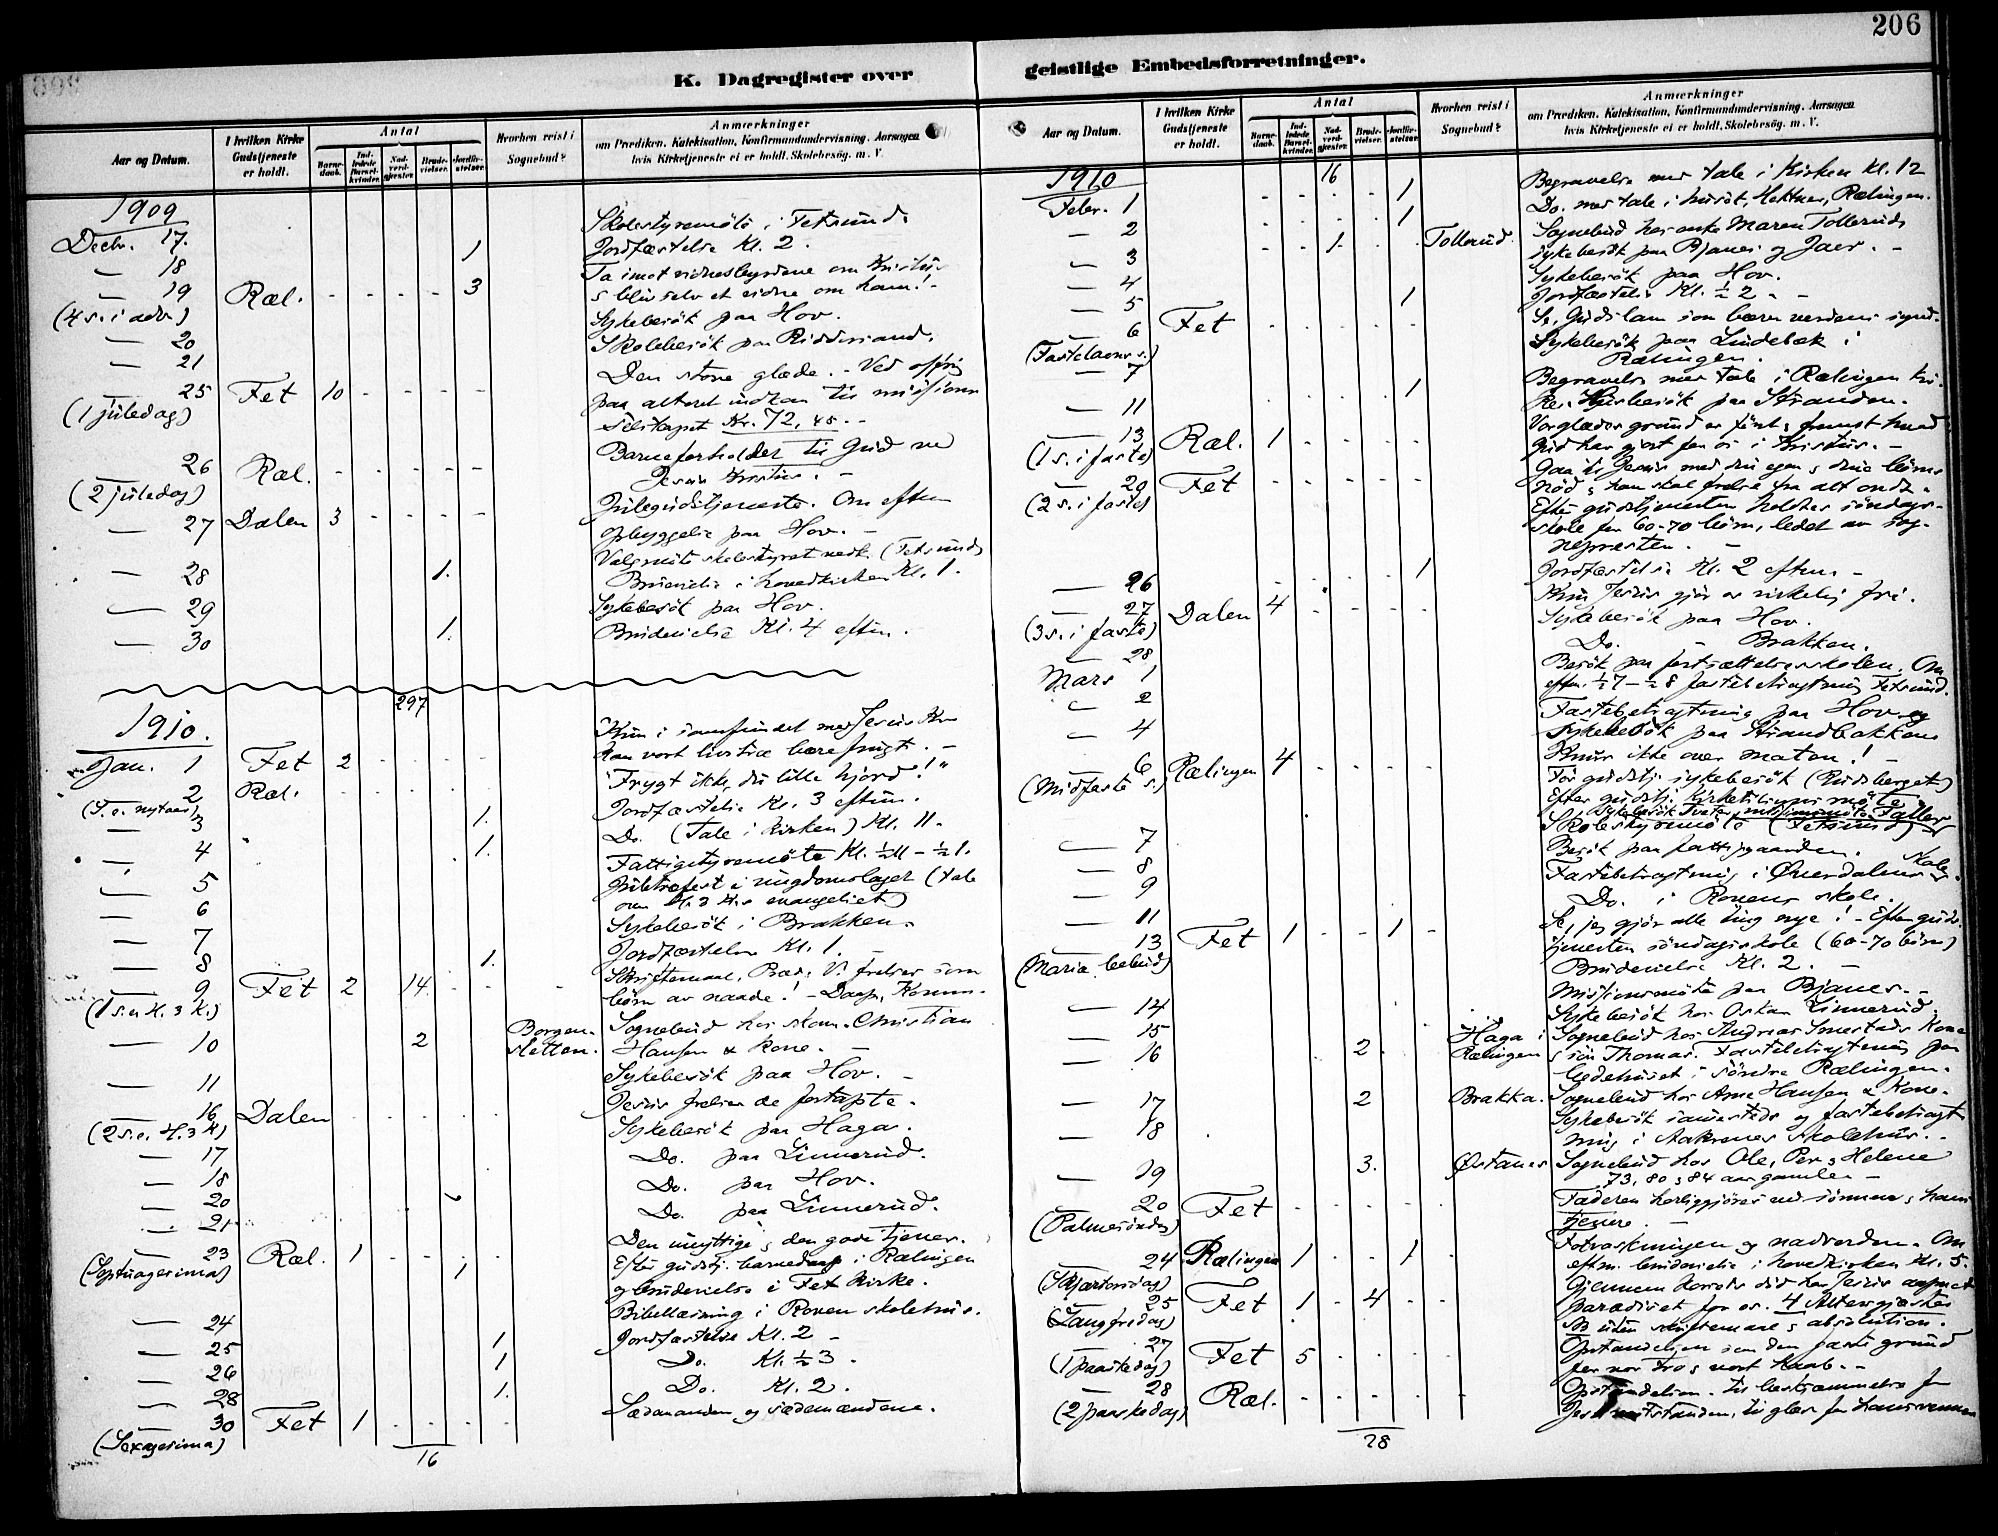 206
K. Dagregister over geistlige Embedsforretninger.
Aar og Datum. I hvilken Kirke Gudstjeneste er holdt. Antal Barnedaab. Indledede Barselkvinder. Nadverdgjester. Brudevielser. Jordfæstelser. Hvorhen reist i Sognebud? Anmærkninger om Prædiken, Katekisation, Konfirmandundervisning, Aarsagen hvis Kirketjeneste ei er holdt, Skolebesøg, m. V.
1909
Decbr. 17. Skolestyremöte i Fetsund.
— 18 1 Jordfæstelse Kl. 2.
— 19 Ræl. - - - - 3 Ta imot vidnesbyrdene om Kristus
(4 s. i adv.) & bliv selv et vidne om ham! -
— 20 Sykebesök paa Hov.
— 21 Skolebesök paa Riddersand.
25 Fet 10 - - - - Den store glæde. - Ved offring
(1 juledag) paa alteret indkom til missions
selskapet Kr. 72,45. -
26 Ræl. - - - - - Barneforholdet til Gud ved
(2 juledag) Jesus Kristus. -
— 27 Dalen 3 - - - - Julegudstjeneste. Om eftm
Opbyggelse paa Hov. -
— 28 1. Valgmöte skolestyret (Fetsund)
Brudevielse i hovedkirken Kl. 1.
— 29 Sykebesök paa Hov.
— 30 1. Brudevielse Kl. 4 eftm.
297
1910.
Jan. 1 Fet 2 - - - - Kun i samfundet med Jesus Kr.
kan vort livstræ bære frugt. -
2 Ræl. - - - - - "Frygt ikke, du lille hjord!"
(S. e. nytaar)
— 3 1. Jordfæstelse Kl. 3 eftm.
— 4 1. Do. (Tale i Kirken) Kl. 11.
— 5 Fattigstyremöte Kl. ½11 - ½1.
— 6 Juletræfest i ungdomslaget (tale
over H. 3 K.s evangeliet)
— 7 Sykebesök i Brakken.
— 8 1. Jordfæstelse Kl. 1. -
— 9 Fet 2 - 14 - - - Skriftemaal, Præd.: Vi frelses som
(1 s. e. H. 3 K.) börn av naade! - Daap, Komm.
— 10 2 Borgen- Sognebud hos skom. Christian
sletten. Hansen & kone. -
— 11 Sykebesök paa Hov. -
16 Dalen - - - - - Jesus frelser de fortapte.
(2 s. e. H. 3 K)
— 17 Sykebesök paa Haga.
— 18 Do. paa Linnerud.
— 20 Do. paa Hov.
— 21 Do. paa Linnerud.
— 23 Ræl. 1 - - 1 - Den unyttige & den gode tjener.
(Septuagesima) Efter gudstj. barnedaap i Rælingen
og brudevielse i Fet kirke.
— 24 Bibellæsning i Roven skolehus.
— 25 1 Jordfæstelse Kl. 2 -
— 26 1 Do. Kl. ½3.
— 28 1. Do. Kl. 2.
— 30 Fet 1 - - - - Sædemanden og sædemændene.
(Sexagesima)
16
1910 16
Febr. 1 - - - - 1 Begravelse med tale i Kirken Kl. 12
— 2 - - - - 1 Do. med tale i huset, Hektner, Rælingen.
— 3 - - 1 - - Tollerud. Sognebud hos enke Maren Tollerud,
sykebesök paa Bjanes og Jaer. -
— 4 Sykebesök paa Hov.
— 5 1 Jordfæstelse Kl. ½2. -
— 6 Fet - - - - - Se, Guds lam som bærer verdens synd.
(Fastelavns s.)
— 7 Sykebesök paa Lindebæk i
Rælingen.
— 11 1 Begravelse med tale i Rælingen
besök paa Stranden.
— 13 Ræl. 1 - - - - Vor glædes grund er först & fremst hvad
(1 s. i faste) Gud har gjort for os i Kristus. -
— 20 Fet - - - - - Gaa til Jesus med din egen & dine börns
(2 s. i faste) nöd & han skal frelse fra alt ondt.
Efter gudstjenesten holdtes söndags-
skole for 60-70 börn, ledet av sog-
nepresten. -
— 26 - - - - 1 Jordfæstelse Kl. 2 eftm. -
— 27 Dalen 4 - - - - Kun Jesus gjör os virkelig fri.
(3 s. i faste)
— 28 Sykebesök paa Hov.
Mars 1 Do. - Brakken.
— 2 Besök paa fortsættelsesskolen. Om
eftm. ½7 - ½8 fastebetragtning Fetsund.
— 4 Fastebetragtning paa Hov og
Sykebesök paa Strandbakken
— 6 Rælingen 4 - - - - Knur ikke over maten! -
(Midfaste s.) Før gudstj. sykebesök (Rudsberget)
Efter gudstj. Kirketilsyns möte.
Sykebesök Tveter, missionsmöte Faller
— 7 Skolestyremöte (Fetsund)
— 8 Besök paa fattiggaarden.
— 9 Fastebetragtning i Øverdalens skole.
— 11 Do. i Rovens skole.
— 13 Fet 1 - - 1 - Se, jeg gjör alle ting nye! - Efter guds-
(Maria bebud.) tjenesten söndagsskole (60-70 börn)
Brudevielse Kl. 2. -
— 14 Missionsmöte paa Bjanes. -
— 15 Sykebesök hos Oskar Linnerud.
— 16 2 Haga i Rælingen Sognebud hos Andreas Smestads kone
& sön Thomas. Fastebetragtning paa
bedehuset i söndre Rælingen.
— 17 2 Brakka. Sognebud hos Arne Hansen & Kone.
— 18 Sykebesök sammesteds og fastebetragt-
ning i Aakrenes skolehus.
— 19 3. Østanes Sognebud hos Ole, Per & Helene
73, 80 & 84 aar gamle. -
— 20 Fet - - - - - Faderen herliggjöres ved sönnen & hans
(Palmesöndag) tjenere. -
— 24 Rælingen 1 - - 1 - Fotvaskningen og nadverden. Om
(Skjærtorsdag) eftm. brudevielse i hovedkirken Kl. 5.
— 25 Fet 1 - 4 - - Gjennem korsets död har Jesus aapnet
(Langfredag) paradiset for os. 4 Altergjæster
uten skriftemaal & absolution.
— 27 Fet 5 - - - - Opstandelsen som den faste grund
(1 paaskedag) for vor tro & vort haab. -
— 28 Ræl. - - - - - Opstandelsen. til bestemmelse for
(2 paaskedag) Jesu motstandere, til glæde for hans venner
28